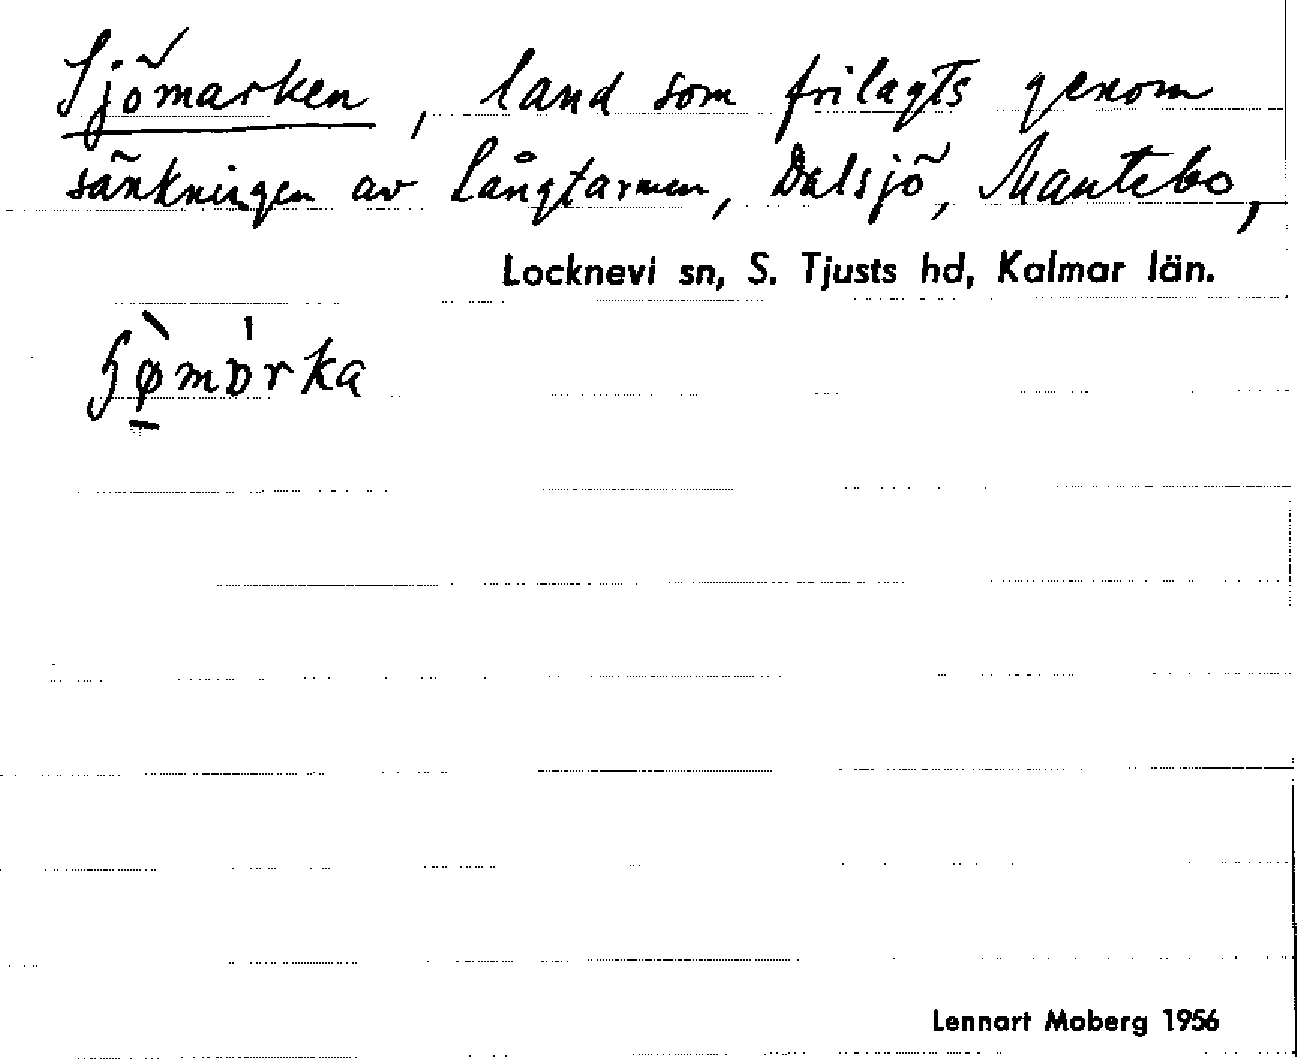 Sjömarken, land som frilagts genom
sänkningen av Långtarmen, Dalsjö, Mantebo,
Locknevi sn, S. Tjusts hd, Kalmar län.
Lennart Moberg 1956